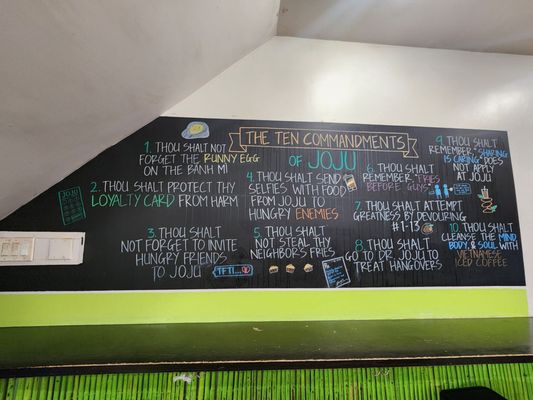 THE TEN COMMANDMENTS
OF JOJU
1. THOU SHALT NOT
FORGET THE RUNNY EGG
ON THE BANH MI
2. THOU SHALT PROTECT THY
LOYALTY CARD FROM HARM
3. THOU SHALT
NOT FORGET TO INVITE
HUNGRY FRIENDS
TO JOJU
TFTI...
4. THOU SHALT SEND
SELFIES WITH FOOD
FROM JOJU TO
HUNGRY ENEMIES
5. THOU SHALT
NOT STEAL THY
NEIGHBORS FRIES
6. THOU SHALT
REMEMBER, "FRIES
BEFORE GUYS"
7. THOU SHALT ATTEMPT
GREATNESS BY DEVOURING
#1-13
8. THOU SHALT
GO TO DR. JOJU TO
TREAT HANGOVERS
9. THOU SHALT
REMEMBER, "SHARING
IS CARING" DOES
NOT APPLY
AT JOJU
10. THOU SHALT
CLEANSE THE MIND
BODY, & SOUL WITH
VIETNAMESE
ICED COFFEE